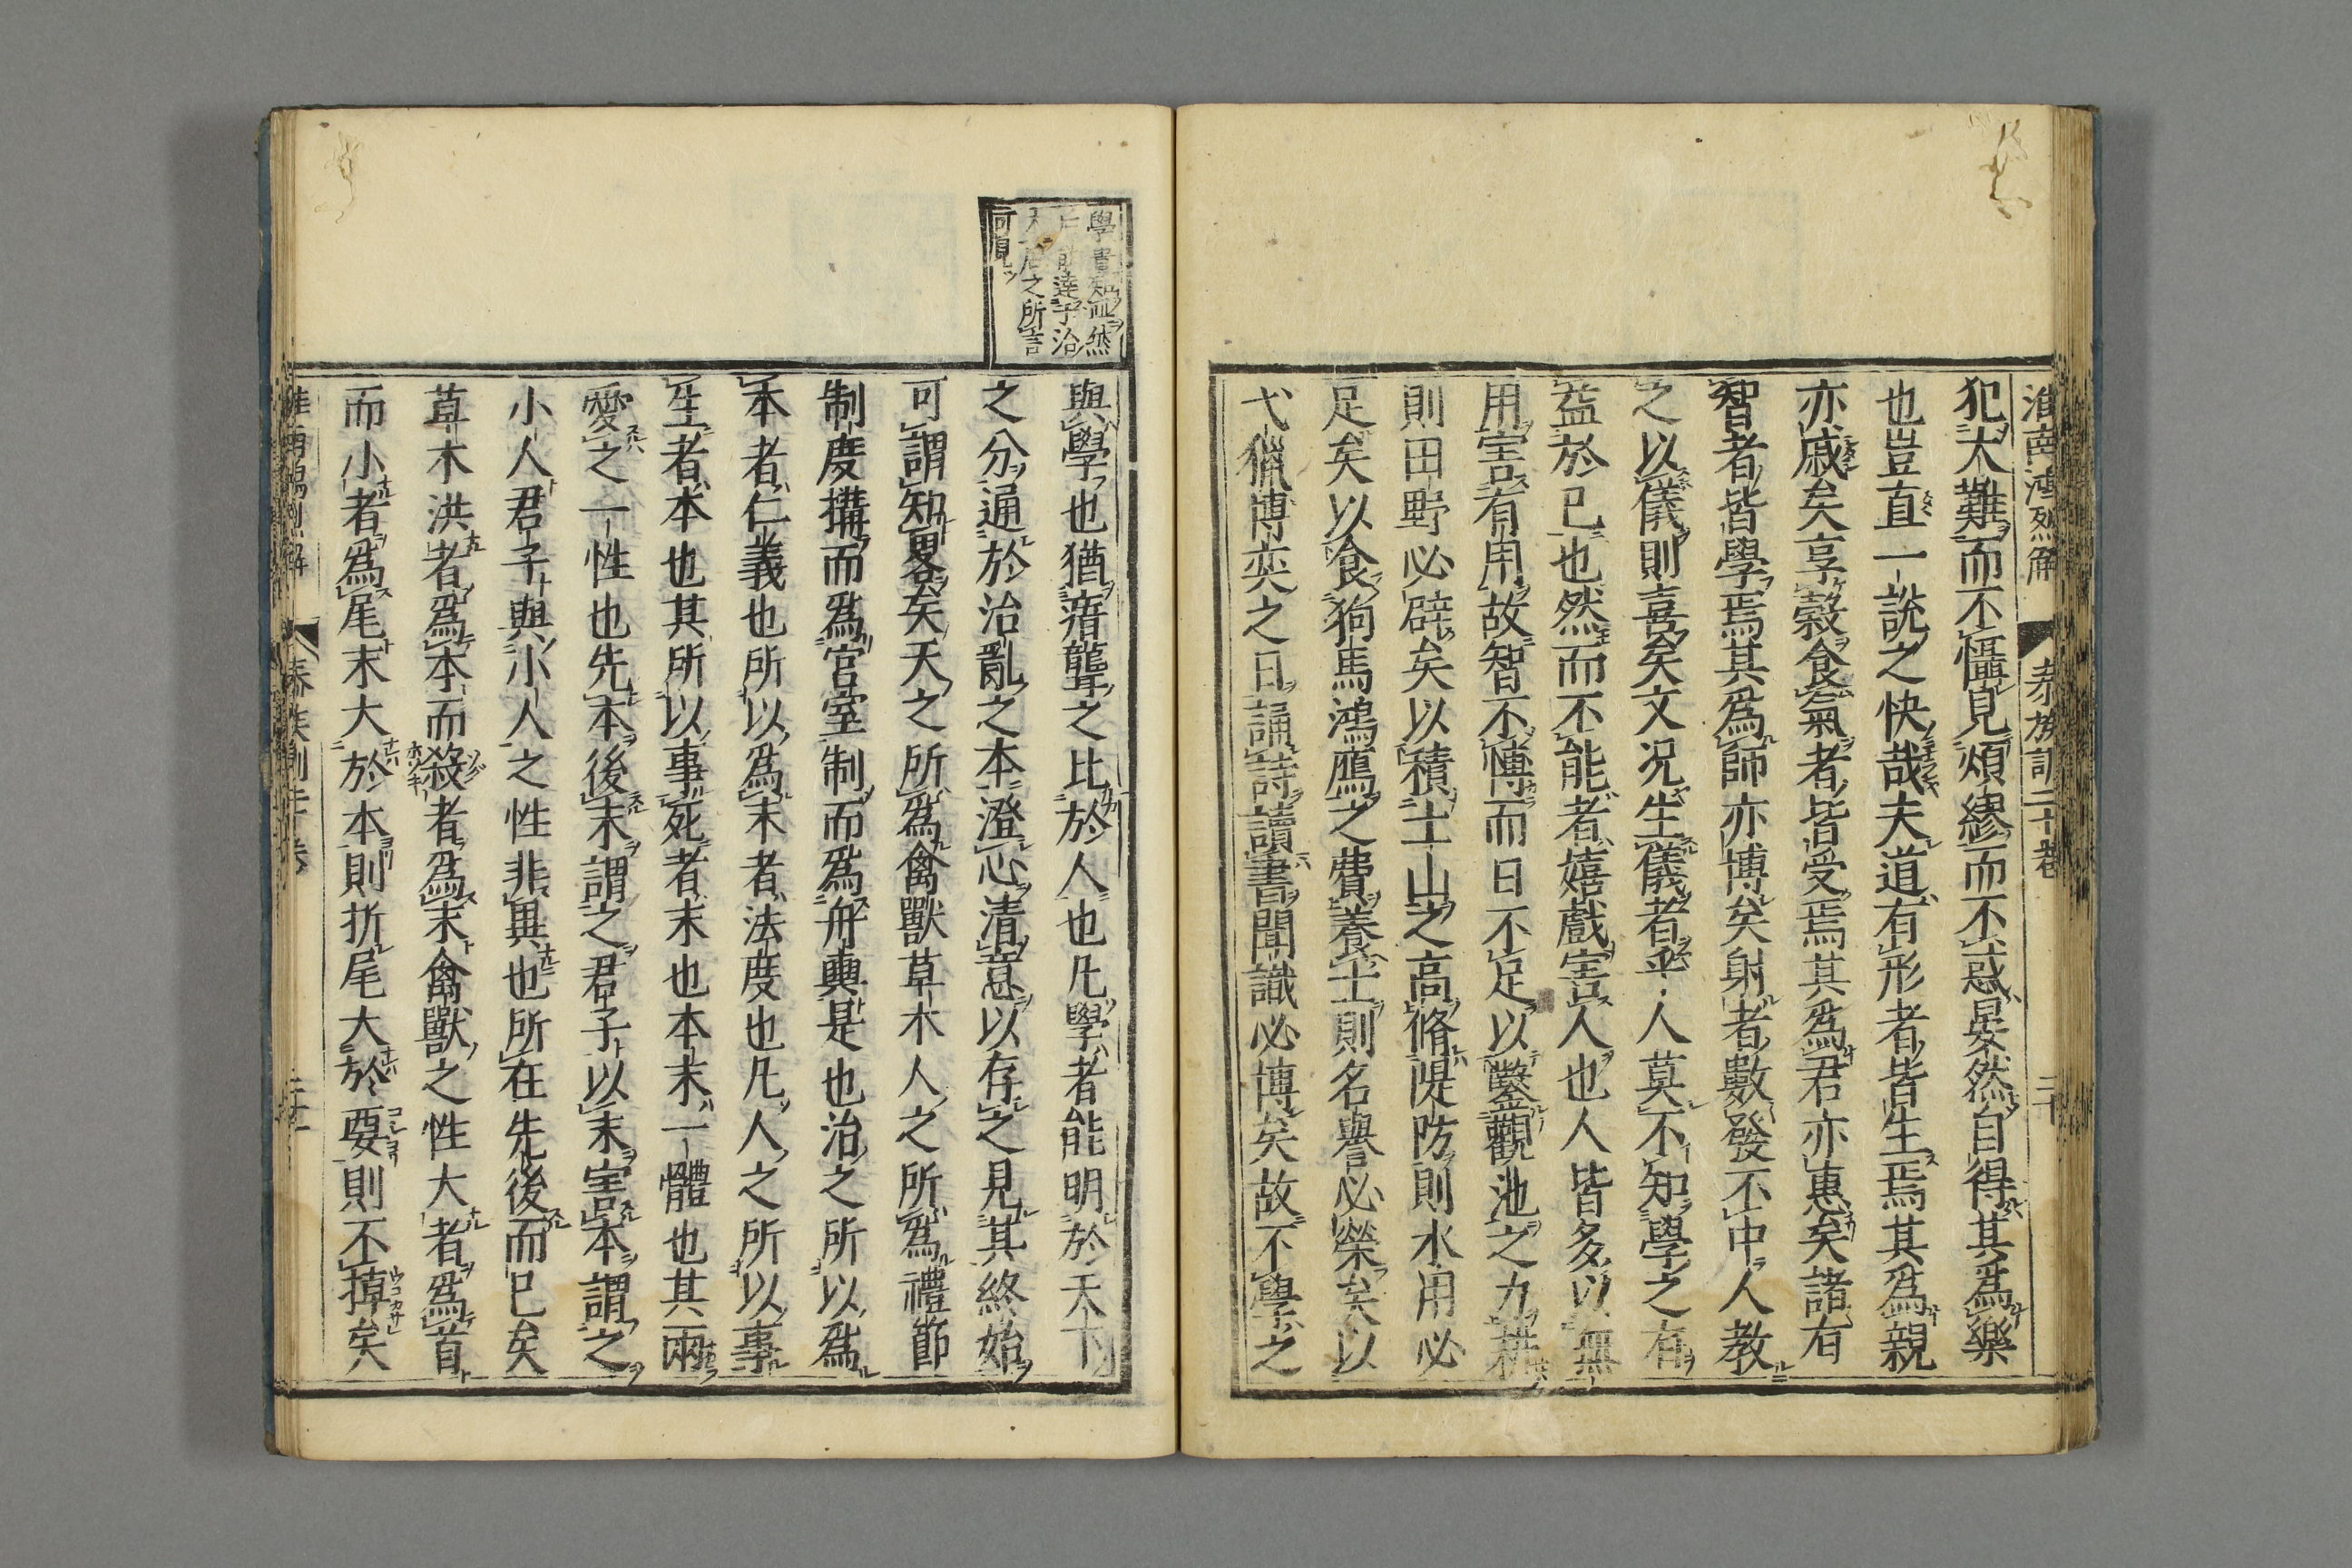 淮南鴻烈解 泰族訓二十卷 三十
犯大難而不懾見煩繆而不惑晏然自得其爲樂
也豈直一說之快哉夫道有形者皆生焉其爲親
亦戚矣享穀食氣者皆受焉其爲君亦惠矣諸有
智者皆學焉其爲師亦博矣射者數發不中人教
之以儀則喜矣又况生儀者乎人莫不知學之有
益於已也然而不能者嬉戲害人也人皆多以無
用害有用故智不博而日不足以鑿觀池之力耕
則田野必辟矣以積土山之高脩隄防則水用必
足矣以食狗馬鴻鴈之費養士則名譽必榮矣以
弋獵博奕之日誦詩讀書聞識必博矣故不學之
學貴知
達于治
之所言
何見
與學也猶瘖聾之比於人也凡學者能明於天下
之分通於治亂之本澄心清意以存之見其終始
可謂知畧矣天之所爲禽獸草木人之所爲禮節
制度搆而爲宮室制而爲舟輿是也治之所以爲
本者仁義也所以爲末者法度也凡人之所以事
生者本也其所以事死者末也本末一體也其兩
愛之一性也先本後末謂之君子以末害本謂之
小人君子與小人之性非異也所在先後而巳矣
草木洪者爲本而殺者爲末禽獸之性大者爲首
而小者爲尾末大於本則折尾大於要則不掉矣